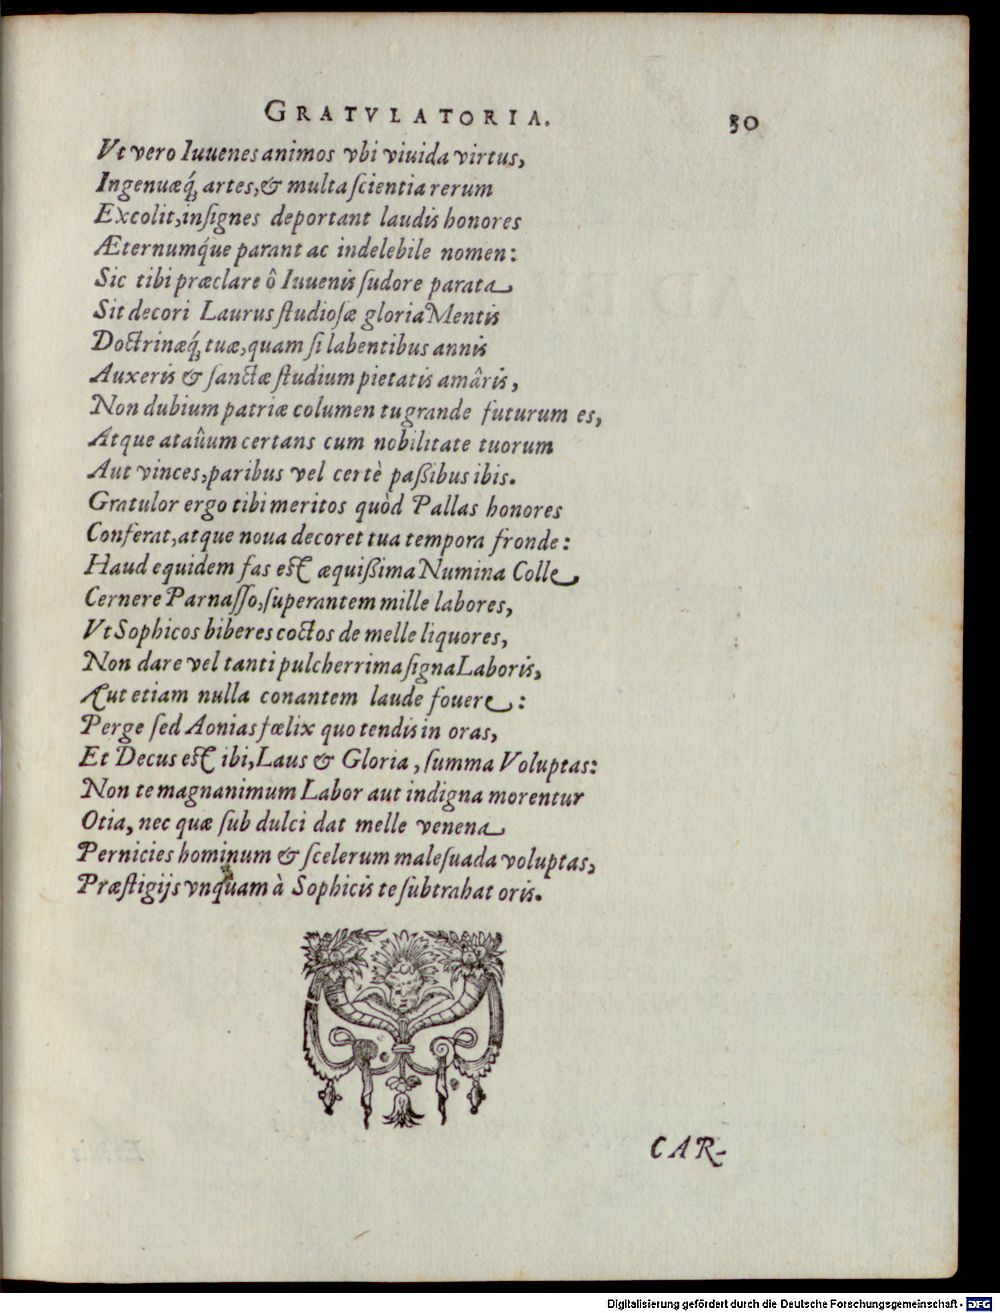 GRATVLATORIA. 50
Vt vero Iuuenes animos vbi viuida virtus,
Ingenuæq́; artes, & multa scientia rerum
Excolit, insignes deportant laudis honores
Æternumq́ue parant ac indelebile nomen:
Sic tibi præclare ô Iuuenis sudore parata
Sit decori Laurus studiosæ gloria Mentis
Doctrinæq́; tuæ, quam si labentibus annis
Auxeris & sanctæ studium pietatis amâris,
Non dubium patriæ columen tu grande futurum es,
Atque ataûum certans cum nobilitate tuorum
Aut vinces, paribus vel certè paßibus ibis.
Gratulor ergo tibi meritos quòd Pallas honores
Conferat, atque noua decoret tua tempora fronde:
Haud equidem fas est æquißima Numina Colle
Cernere Parnasso, superantem mille labores,
Vt Sophicos biberes coctos de melle liquores,
Non dare vel tanti pulcherrima signa Laboris,
Aut etiam nulla conantem laude fouere:
Perge sed Aonias fœlix quo tendis in oras,
Et Decus est ibi, Laus & Gloria, summa Voluptas:
Non te magnanimum Labor aut indigna morentur
Otia, nec quæ sub dulci dat melle venena
Pernicies hominum & scelerum malesuada voluptas,
Præstigijs vnquam à Sophicis te subtrahat oris.
CAR-
Digitalisierung gefördert durch die Deutsche Forschungsgemeinschaft - DFG